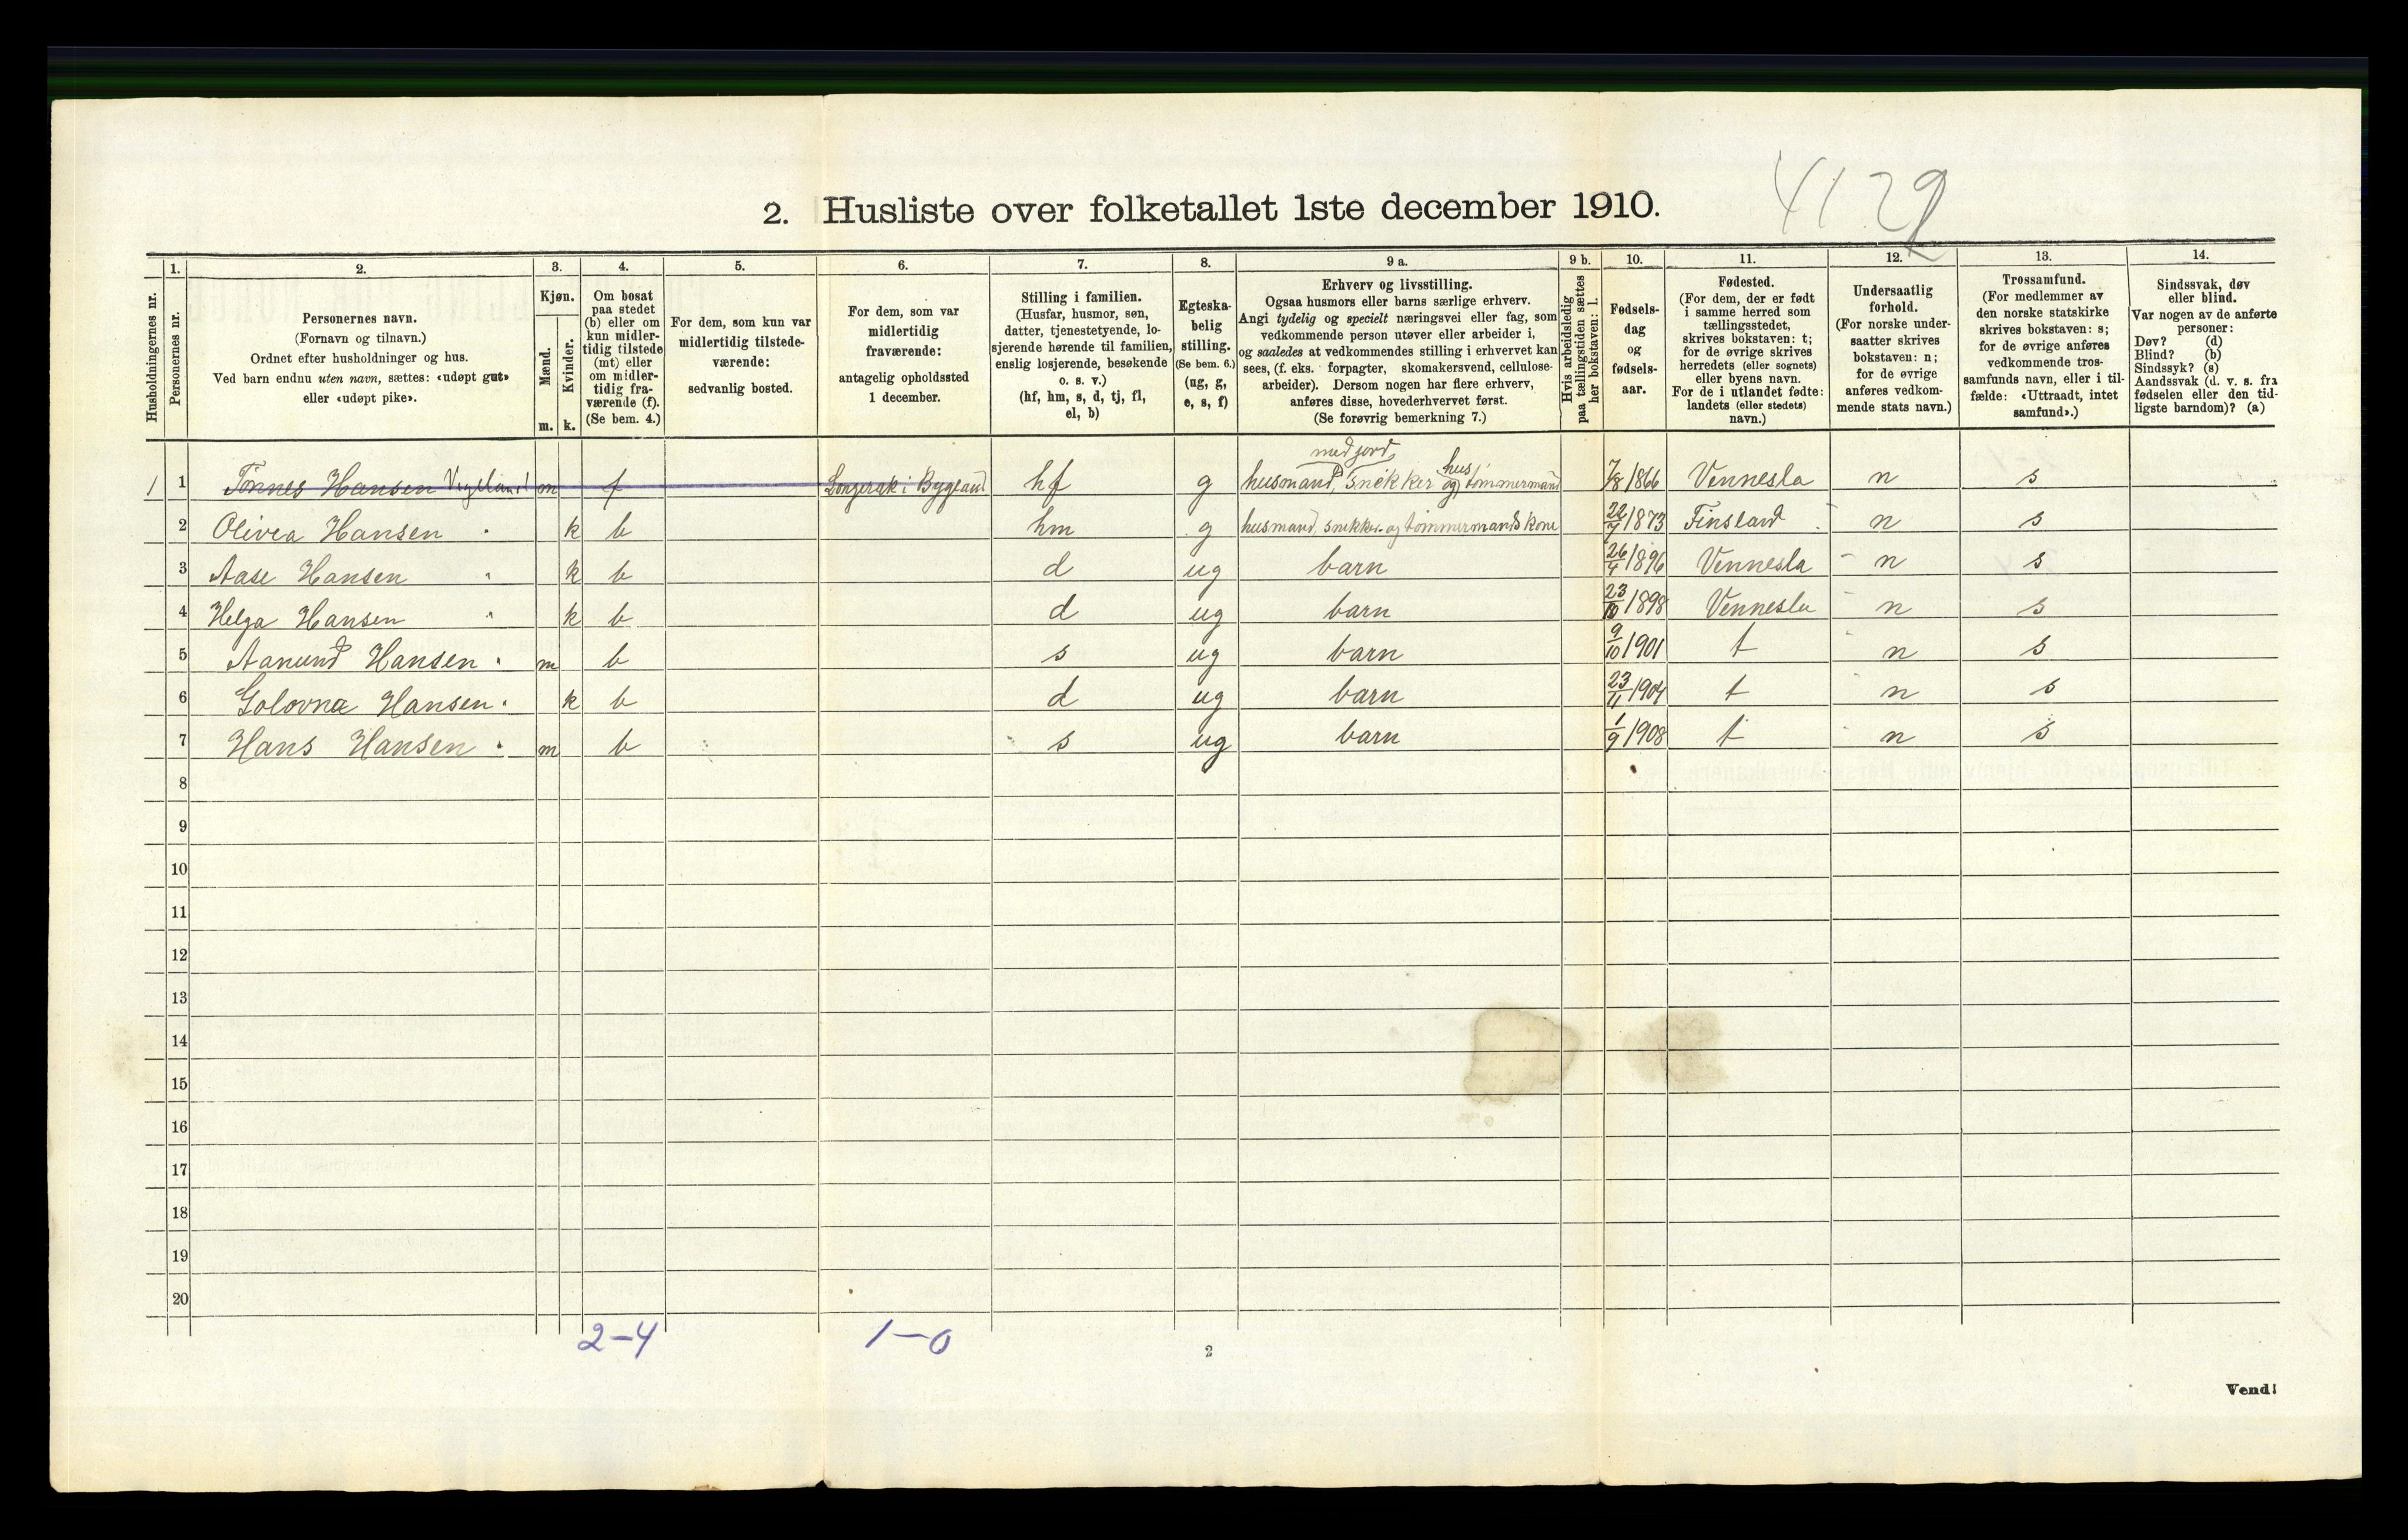 41.29
2. Husliste over folketallet 1ste december 1910.
Husholdningernes nr.
1.
Personernes nr.
2.
Personernes navn.
(Fornavn og tilnavn.)
Ordnet efter husholdninger og hus.
Ved barn endnu uten navn, sættes: «udøpt gut»
eller «udøpt pike».
3.
Kjøn.
Mænd.
Kvinder.
m. k.
4.
Om bosat
paa stedet
(b) eller om
kun midler-
tidig tilstede
(mt) eller
om midler-
tidig fra-
værende (f).
(Se bem. 4.)
5.
For dem, som kun var
midlertidig tilstede-
værende:
sedvanlig bosted.
6.
For dem, som var
midlertidig
fraværende:
antagelig opholdssted
1 december.
7.
Stilling i familien.
(Husfar, husmor, søn,
datter, tjenestetyende, lo-
sjerende hørende til familien,
enslig losjerende, besøkende
o. s. v.)
(hf, hm, s, d, tj, fl,
el, b)
8.
Egteska-
belig
stilling.
(Se bem. 6.)
(ug, g,
e, s, f)
9 a.
Erhverv og livsstilling.
Ogsaa husmors eller barns særlige erhverv.
Angi tydelig og specielt næringsvei eller fag, som
vedkommende person utøver eller arbeider i,
og saaledes at vedkommendes stilling i erhvervet kan
sees, (f. eks. forpagter, skomakersvend, cellulose-
arbeider). Dersom nogen har flere erhverv,
anføres disse, hovederhvervet først.
(Se forøvrig bemerkning 7.)
9 b.
Hvis arbeidsledig
paa tællingstiden sættes
her bokstaven: l.
10.
Fødsels-
dag
og
fødsels-
aar.
11.
Fødested.
(For dem, der er født
i samme herred som
tællingsstedet,
skrives bokstaven: t;
for de øvrige skrives
herredets (eller sognets)
eller byens navn.
For de i utlandet fødte:
landets (eller stedets)
navn.)
12.
Undersaatlig
forhold.
(For norske under-
saatter skrives
bokstaven: n;
for de øvrige
anføres vedkom-
mende stats navn.)
13.
Trossamfund.
(For medlemmer av
den norske statskirke
skrives bokstaven: s;
for de øvrige anføres
vedkommende tros-
samfunds navn, eller i til-
fælde: «Uttraadt, intet
samfund».)
14.
Sindssvak, døv
eller blind.
Var nogen av de anførte
personer:
Døv? (d)
Blind? (b)
Sindssyk? (s)
Aandssvak (d. v. s. fra
fødselen eller den tid-
ligste barndom)? (a)
med jord, hus
1 1 Tønnes Hansen Vigeland m f i Bygland hf g husmand, snekker og tømmermand 7/8 1866 Vennesla n s
2 Olivea Hansen " k b hm g husmand, snekker og tømmermands kone 22/7 1873 Finsland n s
3 Aase Hansen " k b d ug barn 26/4 1896 Vennesla n s
4 Helga Hansen " k b d ug barn 23/10 1898 Vennesla n s
5 Aanund Hansen " m b s ug barn 9/10 1901 t n s
6 Golovna Hansen " k b d ug barn 23/11 1904 t n s
7 Hans Hansen " m b s ug barn 1/9 1908 t n s
8
9
10
11
12
13
14
15
16
17
18
19
20
2-4 1-0
2
Vend!